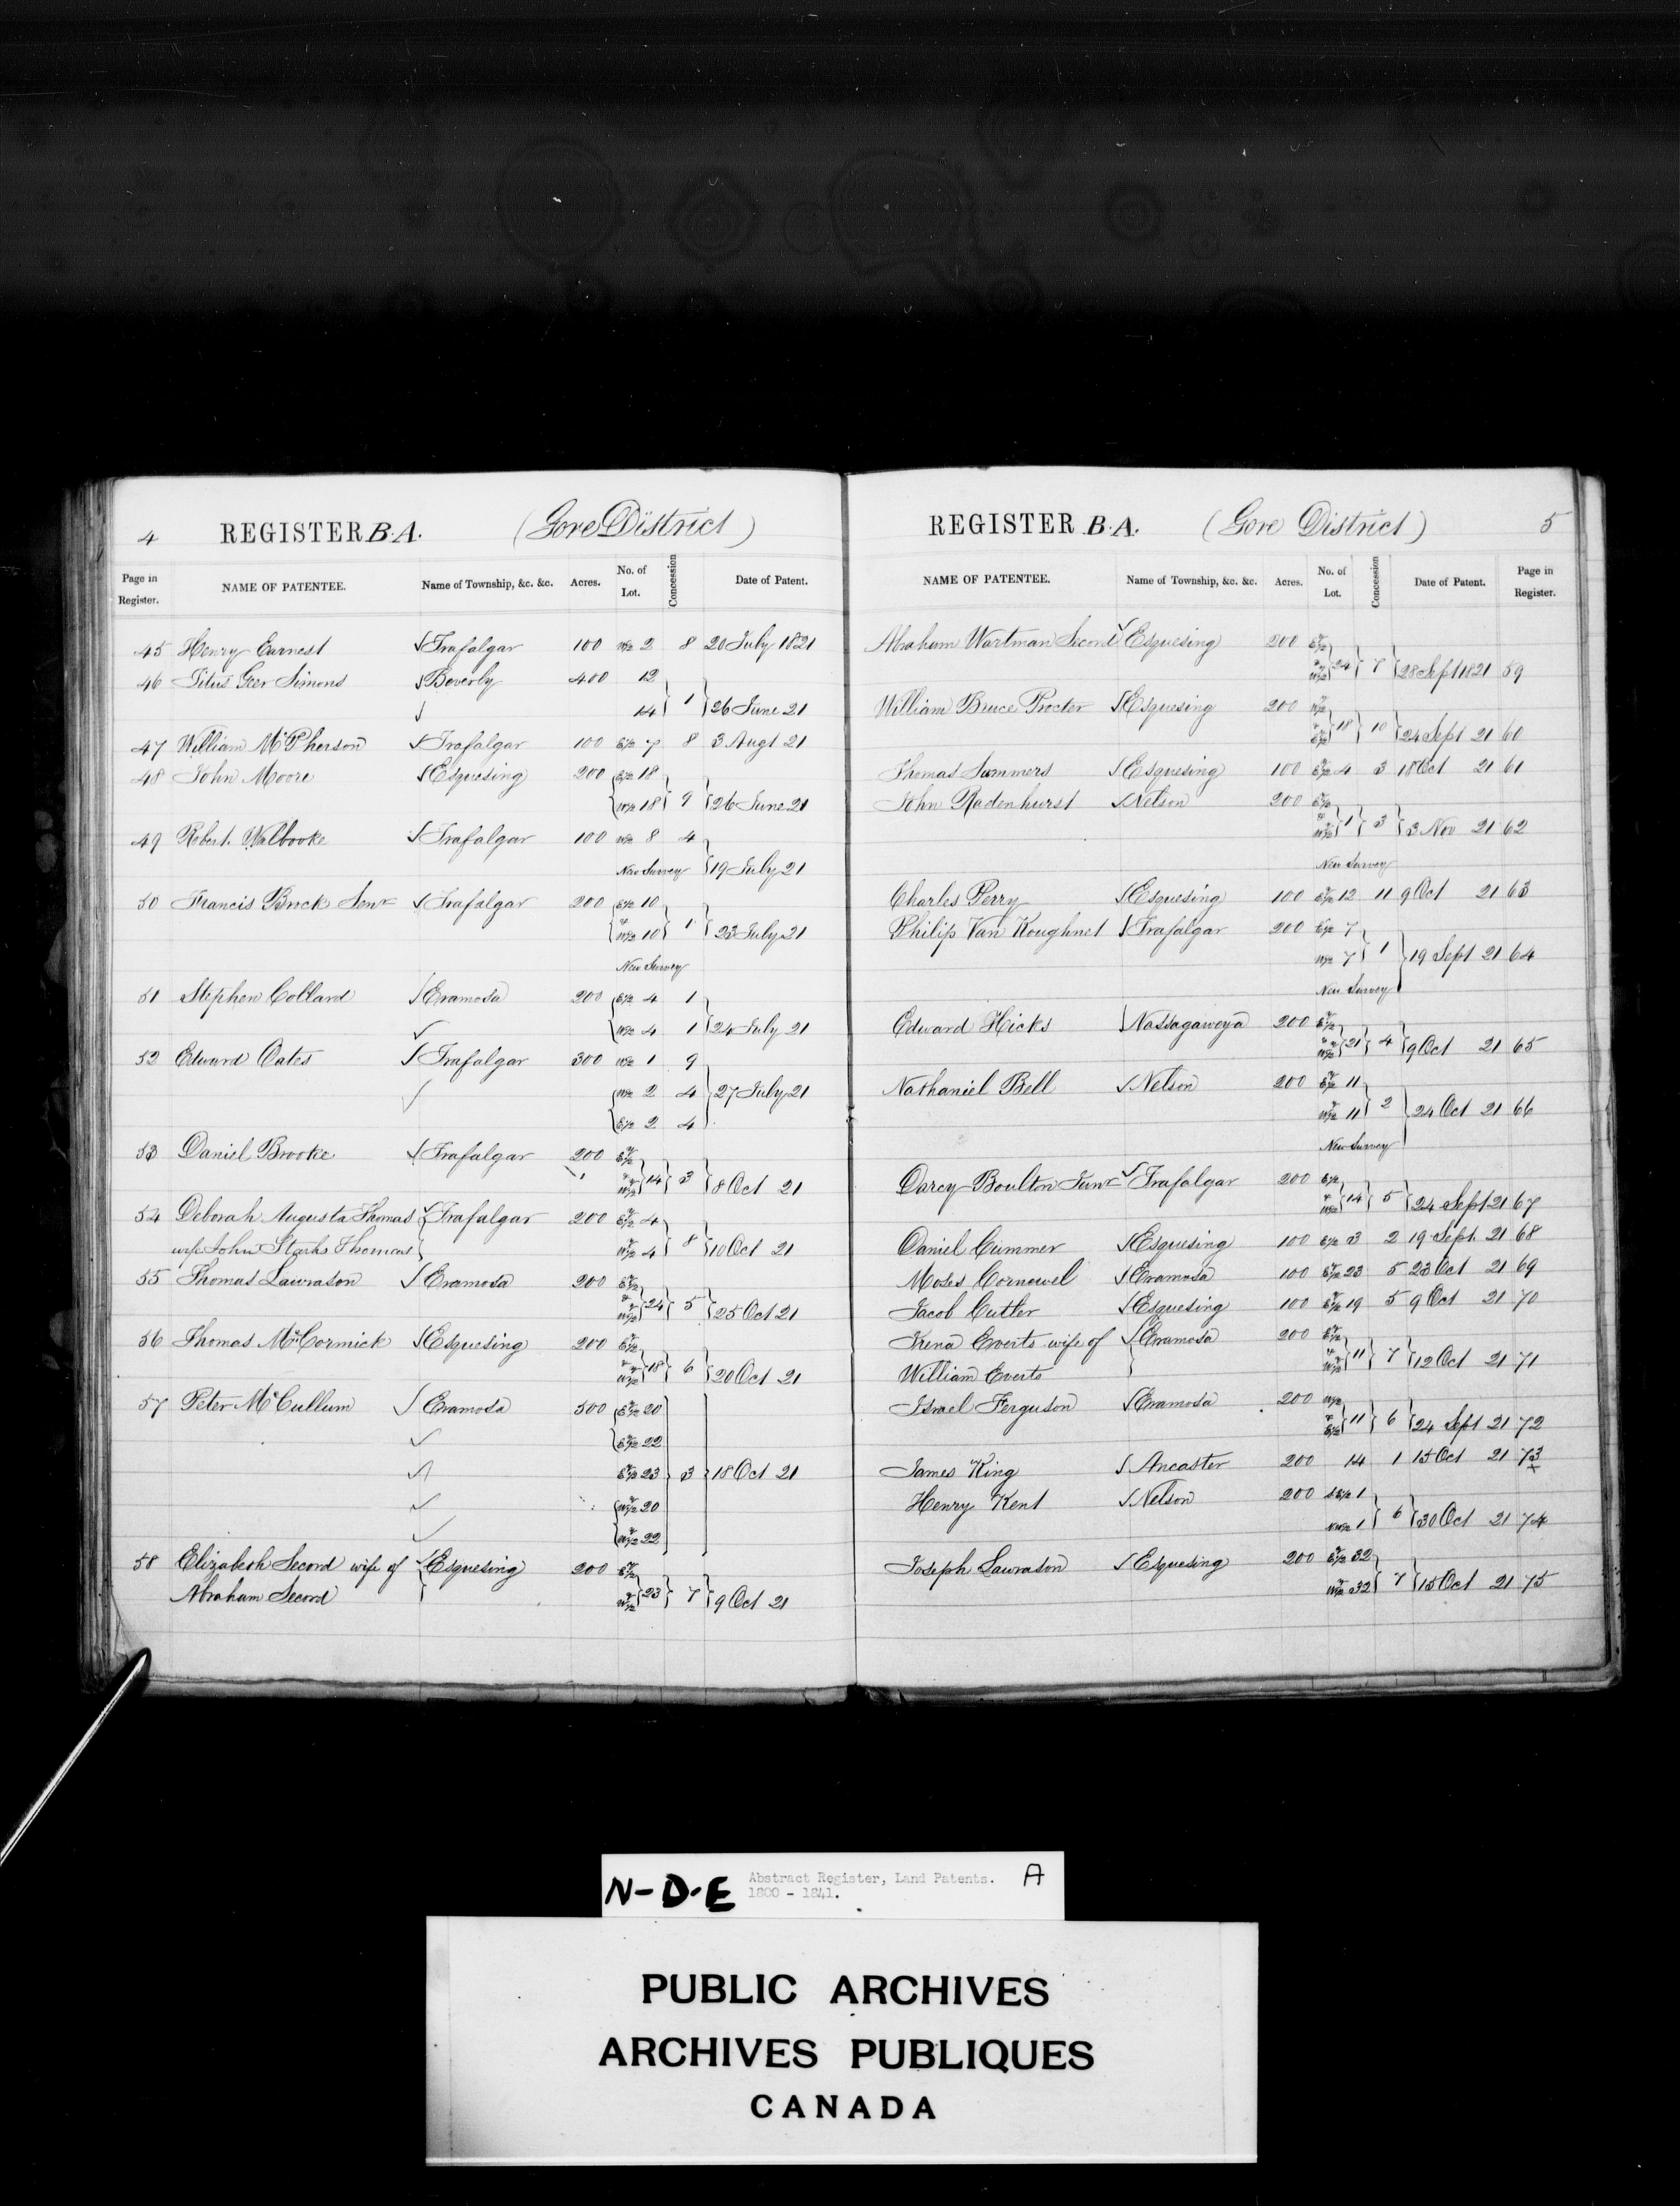 4 REGISTER B.A. (Gore District)
Page in Register. NAME OF PATENTEE. Name of Township, &c. &c. Acres. No. of Lot. Concession Date of Patent.
45 Henry Earnest Trafalgar 100 W½ 2 8 20 July 1821
46 Titus Geer Simons Beverly 400 12
14 1 26 June 21
47 William McPherson Trafalgar 100 E½ 7 8 3 Augt 21
48 John Moore Esquesing 200 E½ 18
W½ 18 9 26 June 21
49 Robert Walbrooke Trafalgar 100 W½ 8 4
New Survey 19 July 21
50 Francis Brick Senr Trafalgar 200 E½ 10
& W½ 10 1 23 July 21
New Survey
51 Stephen Collard Eramosa 200 E½ 4 1
W½ 4 1 24 July 21
52 Edward Oates Trafalgar 300 W½ 1 9
W½ 2 4 27 July 21
E½ 2 4
53 Daniel Brooke Trafalgar 200 E½
& W½ 14 3 8 Oct 21
54 Deborah Augusta Thomas Trafalgar 200 E½ 4
wife John Starks Thomas W½ 4 8 10 Oct 21
55 Thomas Lawrason Eramosa 200 E½
& W½ 24 5 25 Oct 21
56 Thomas McCormick Esquesing 200 E½
& W½ 18 6 20 Oct 21
57 Peter McCullum Eramosa 500 E½ 20
E½ 22
E½ 23 3 18 Oct 21
W½ 20
W½ 22
58 Elizabeth Second wife of Esquesing 200 E½
Abraham Second W½ 23 7 9 Oct 21
REGISTER B.A. (Gore District) 5
NAME OF PATENTEE. Name of Township, &c. &c. Acres. No. of Lot. Concession Date of Patent. Page in Register.
Abraham Wartman Second Esquesing 200 E½
& W½ 24 7 28 Sept 1821 59
William Bruce Procter Esquesing 200 W½
& E½ 18 10 24 Sept 21 60
Thomas Summers Esquesing 100 E½ 4 3 18 Oct 21 61
John Radenhurst Nelson 200 E½
& W½ 1 3 3 Nov 21 62
New Survey
Charles Perry Esquesing 100 E½ 12 11 9 Oct 21 63
Philip Van Koughnet Trafalgar 200 E½ 7
W½ 7 1 19 Sept 21 64
New Survey
Edward Hicks Nassagaweya 200 E½
& W½ 21 4 9 Oct 21 65
Nathaniel Bell Nelson 200 E½ 11
W½ 11 2 24 Oct 21 66
New Survey
Darcy Boulton Junr Trafalgar 200 E½
& W½ 14 5 24 Sept 21 67
Daniel Cummer Esquesing 100 E½ 3 2 19 Sept 21 68
Moses Cornewel Eramosa 100 E½ 23 5 23 Oct 21 69
Jacob Cutler Esquesing 100 E½ 19 5 9 Oct 21 70
Krena Everts wife of Eramosa 200 E½
William Everts & W½ 11 7 12 Oct 21 71
Israel Ferguson Eramosa 200 W½
& E½ 11 6 24 Sept 21 72
James King Ancaster 200 14 1 15 Oct 21 73
x
Henry Kent Nelson 200 SE½ 1
NW½ 1 6 30 Oct 21 74
Joseph Lawrason Esquesing 200 E½ 32
W½ 32 7 15 Oct 21 75
N-D-E Abstract Register, Land Patents. A
1800 - 1841.
PUBLIC ARCHIVES
ARCHIVES PUBLIQUES
CANADA